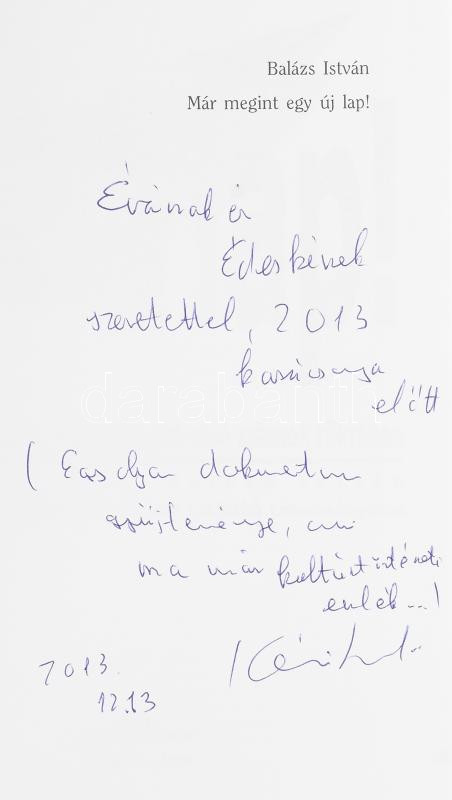 Balázs István
Már megint egy új lap!
Évának és
Édeskének
szeretettel, 2013
karácsonya
előtt
darabanth
( Egy olyan dokumentum
gyűjteménye, ami
ma már kultúrtörténeti
emlék...!
2013.
12.13